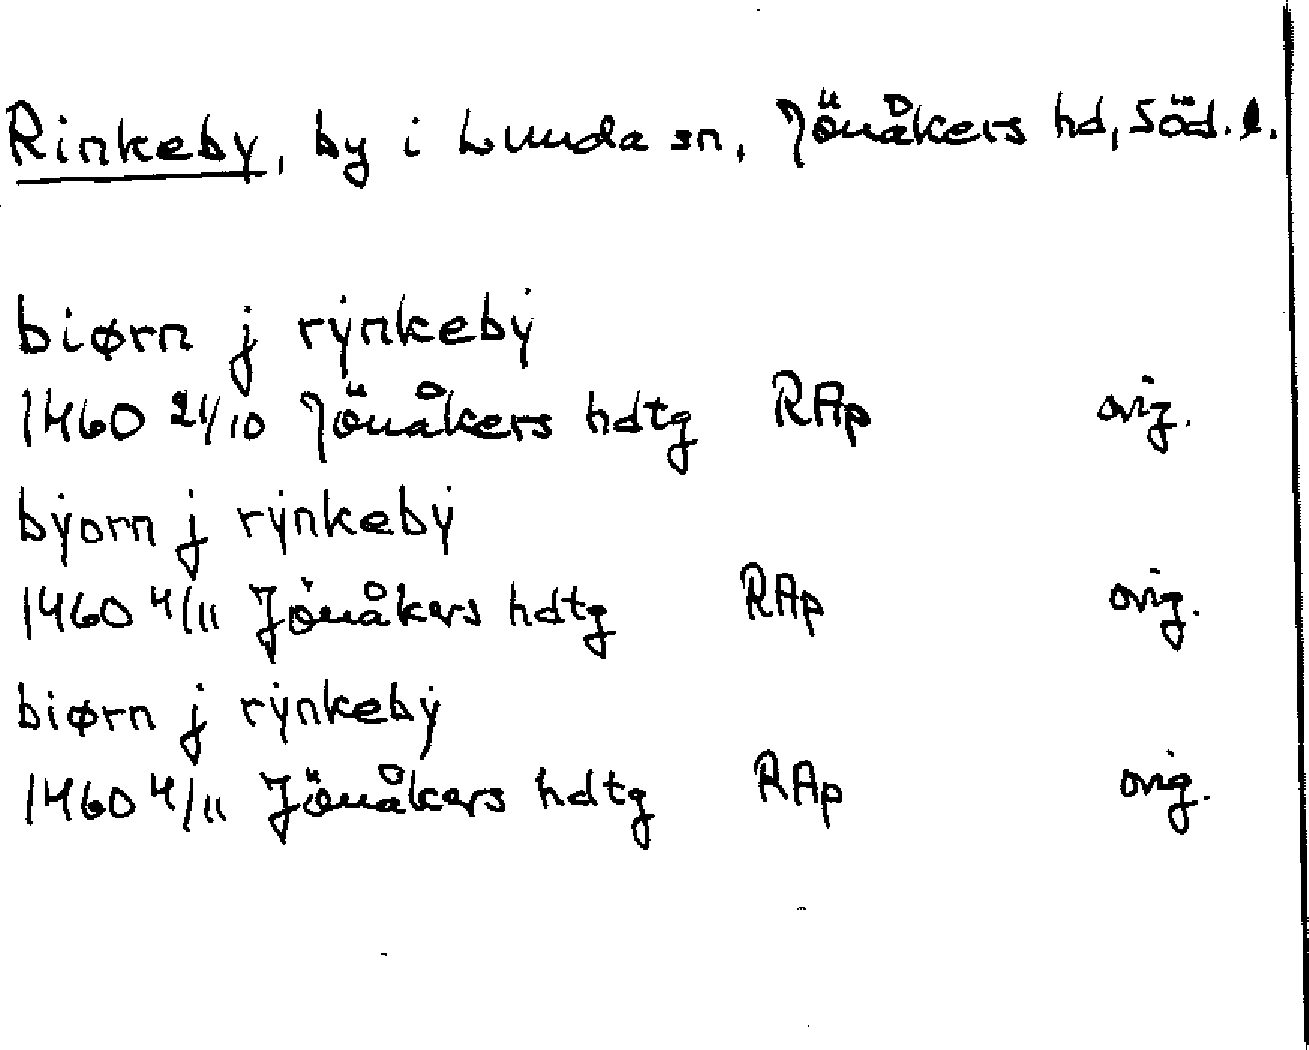 Rinkeby, by i Lunda sn, Jönåkers hd, Söd. l.
biørn j rẏnkebẏ
1460 21/10 Jönåkers hdtg RAp orig.
bẏorn j rẏnkebẏ
1460 4/11 Jönåkers hdtg RAp orig.
biørn j rẏnkebẏ
1460 4/11 Jönåkers hdtg RAp orig.